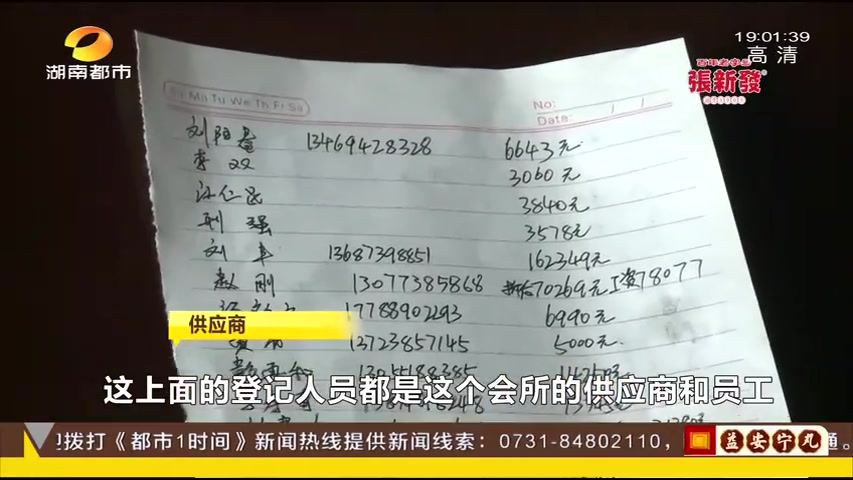 湖南都市
19:01:39
高清
百年老字号
張新發
Su Mo Tu We Th Fr Sa
No:
Date: / /
刘阳春 13469428328 6643元
李双 3060元
3840元
荆强 3578元
刘丰 13687398851 162349元
赵刚 13077385868 70269元 工资78077
17788902293 6990元
13723857145 5000元
13055188385
供应商
这上面的登记人员都是这个会所的供应商和员工
拨打《都市1时间》新闻热线提供新闻线索：0731-84802110，
益安宁丸
通。